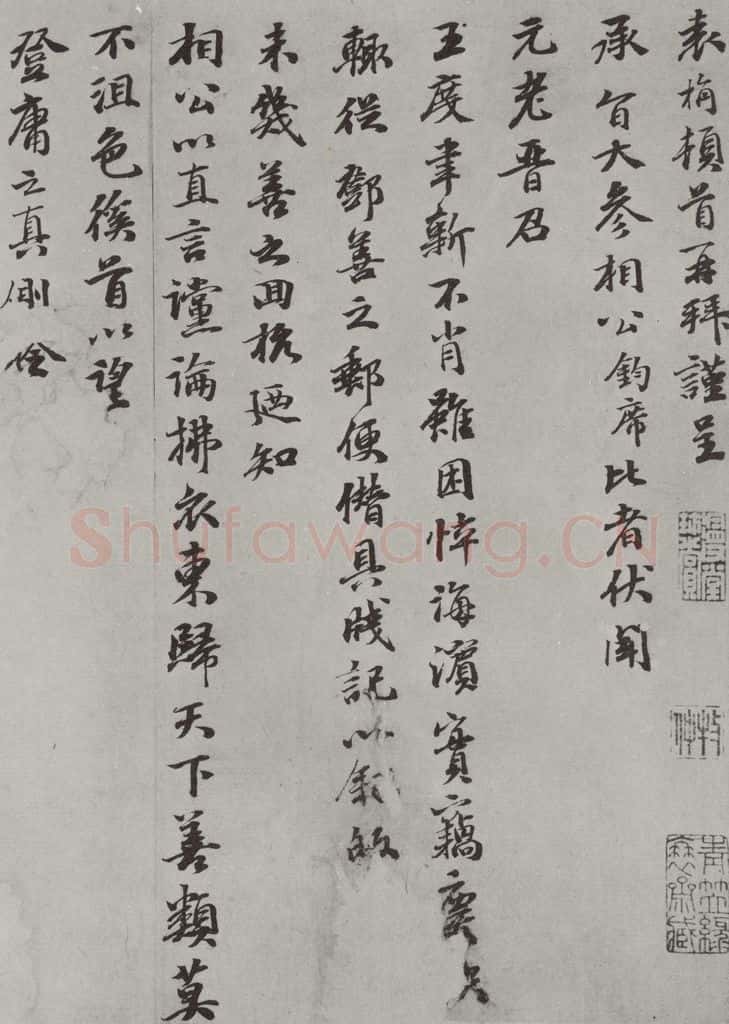 袁桷頓首再拜謹呈
承旨大參相公鈞席比者伏聞
元老晋召
玉度聿新不肖雖困悴海濱實竊慶
輒從鄧善之郵便僭具牋記以敍
未幾善之回抵廼知
相公以直言讜論拂衣東歸天下善類莫
不沮色徯首以望
登庸之真
Shufawang.CN